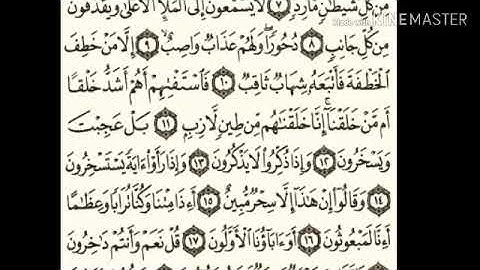 مِّن كُلِّ شَيْطَٰنٍ مَّارِدٍ ٧ لَّا يَسَّمَّعُونَ إِلَى ٱلْمَلَإِ ٱلْأَعْلَىٰ وَيُقْذَفُونَ
Made with KINEMASTER
مِن كُلِّ جَانِبٍ ٨ دُحُورًا وَلَهُمْ عَذَابٌ وَاصِبٌ ٩ إِلَّا مَنْ خَطِفَ
ٱلْخَطْفَةَ فَأَتْبَعَهُۥ شِهَابٌ ثَاقِبٌ ١٠ فَٱسْتَفْتِهِمْ أَهُمْ أَشَدُّ خَلْقًا
أَم مَّنْ خَلَقْنَآ إِنَّا خَلَقْنَٰهُم مِّن طِينٍ لَّازِبٍ ١١ بَلْ عَجِبْتَ
وَيَسْخَرُونَ ١٢ وَإِذَا ذُكِّرُوا۟ لَا يَذْكُرُونَ ١٣ وَإِذَا رَأَوْا۟ ءَايَةً يَسْتَسْخِرُونَ
١٤ وَقَالُوٓا۟ إِنْ هَٰذَآ إِلَّا سِحْرٌ مُّبِينٌ ١٥ أَءِذَا مِتْنَا وَكُنَّا تُرَابًا وَعِظَٰمًا
أَءِنَّا لَمَبْعُوثُونَ ١٦ أَوَءَابَآؤُنَا ٱلْأَوَّلُونَ ١٧ قُلْ نَعَمْ وَأَنتُمْ دَٰخِرُونَ